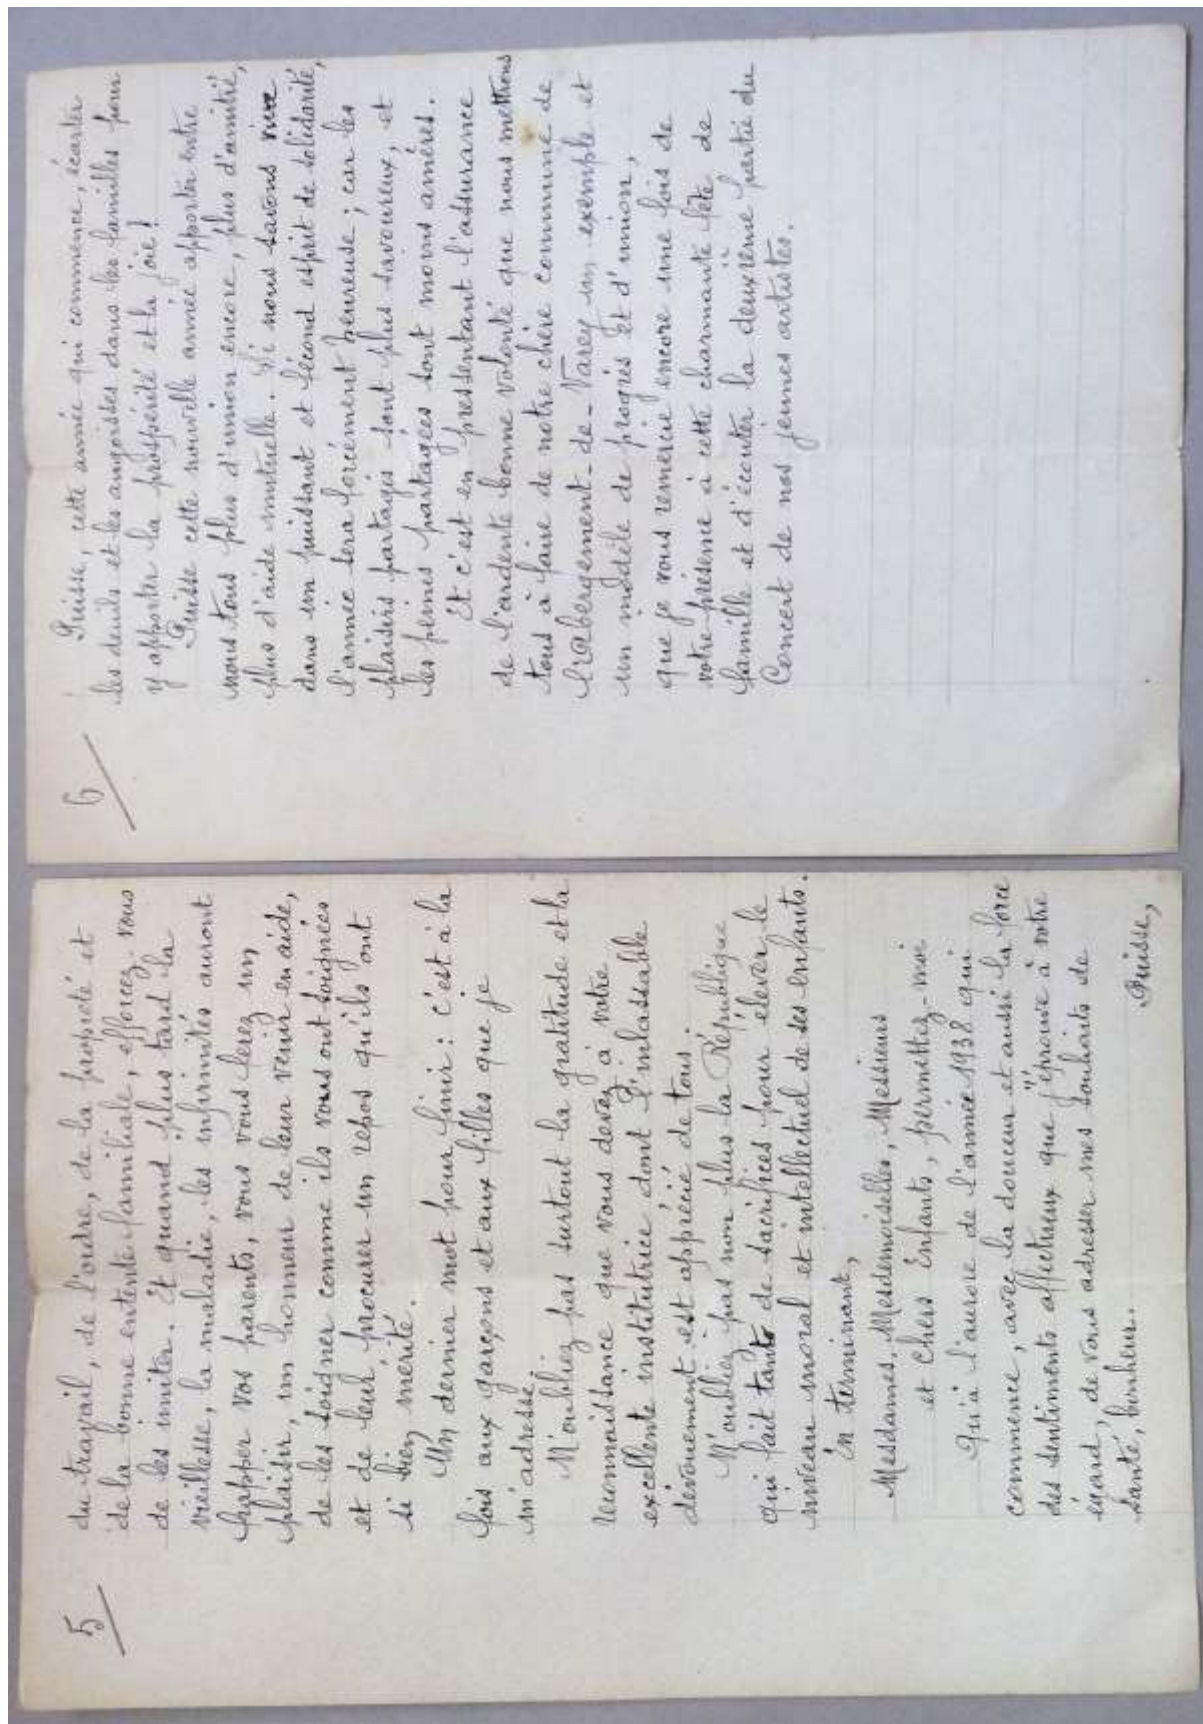 5
du travail, de l'ordre, de la propreté et
de la bonne entente familiale, efforcez-vous
de les imiter. Et quand plus tard la
vieillesse, la maladie, les infirmités auront
frapper vos parents, vous vous ferez un
plaisir, un honneur de leur venir en aide,
de les soigner comme ils vous ont soignées
et de leur procurer un repos qu'ils ont
si bien mérité.
Un dernier mot pour finir : c'est à la
fois aux garçons et aux filles que je
m'adresse.
N'oubliez pas surtout la gratitude et la
reconnaissance que vous devez à votre
excellente institutrice dont l'inlassable
dévouement est apprécié de tous.
N'oubliez pas non plus la République
qui fait tant de sacrifices pour élever le
niveau moral et intellectuel de ses enfants.
En terminant,
Mesdames, Mesdemoiselles, Messieurs
et Chers Enfants, permettez-moi
Qu'à l'aurore de l'année 1938 qui
commence, avec la douceur et aussi la force
des sentiments affectueux que j'éprouve à votre
égard, de vous adresser mes souhaits de
santé, bonheur.
Puisse,
6
Puisse, cette année qui commence, écarter
les deuils et les angoisses dans les familles pour
y apporter la prospérité et la joie !
Puisse cette nouvelle année apporter entre
nous tous plus d'union encore, plus d'amitié,
plus d'aide mutuelle. Si nous savons vivre
dans un puissant et fécond esprit de solidarité,
l'année sera forcément heureuse ; car les
plaisirs partagés sont plus savoureux, et
les peines partagées sont moins amères.
Et c'est en pressentant l'assurance
de l'ardente bonne volonté que nous mettrons
tous à faire de notre chère commune de
l'Abergement-de-Varey un exemple et
un modèle de progrès et d'union,
que je vous remercie encore une fois de
votre présence à cette charmante fête de
famille et d'écouter la deuxième partie du
Concert de nos jeunes artistes.